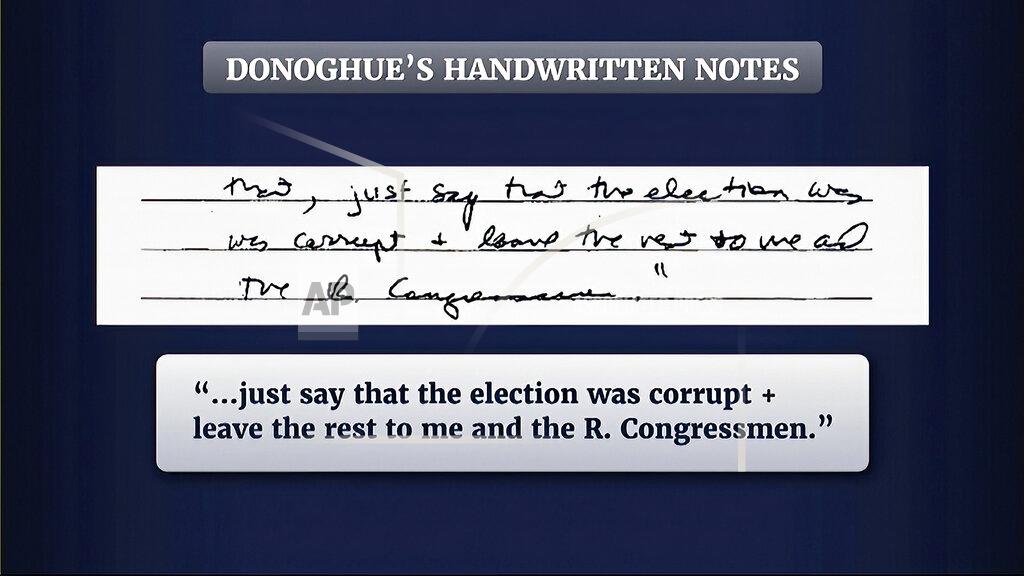 DONOGHUE’S HANDWRITTEN NOTES
that, just say that the election was
was corrupt + leave the rest to me and
the R. Congressmen."
AP
“...just say that the election was corrupt +
leave the rest to me and the R. Congressmen.”